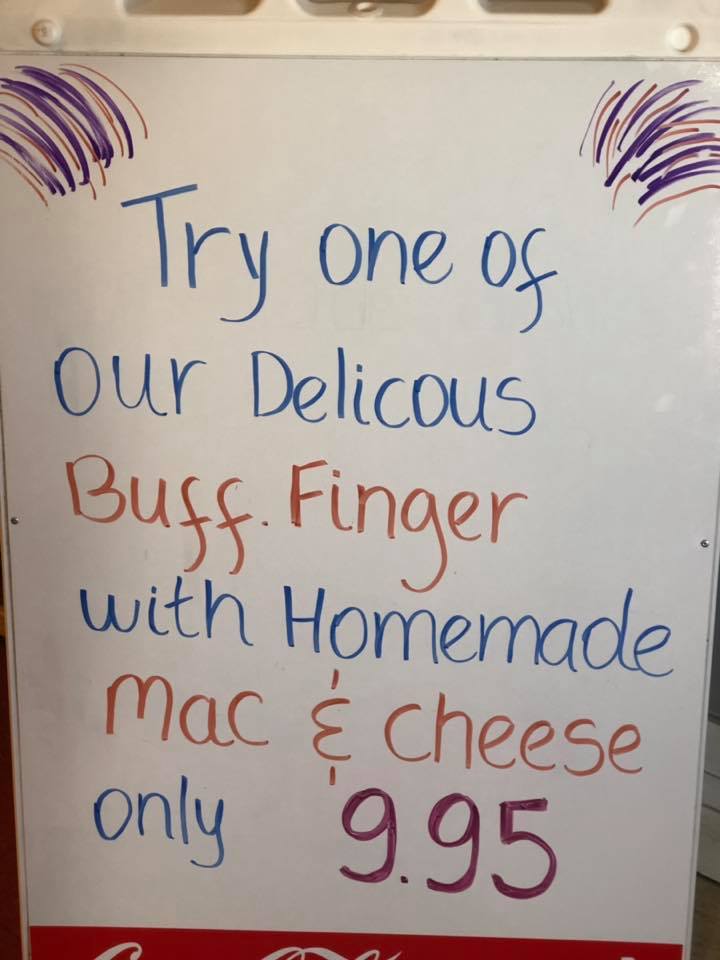 Try one of
our Delicous
Buff. Finger
with Homemade
Mac & cheese
only 9.95